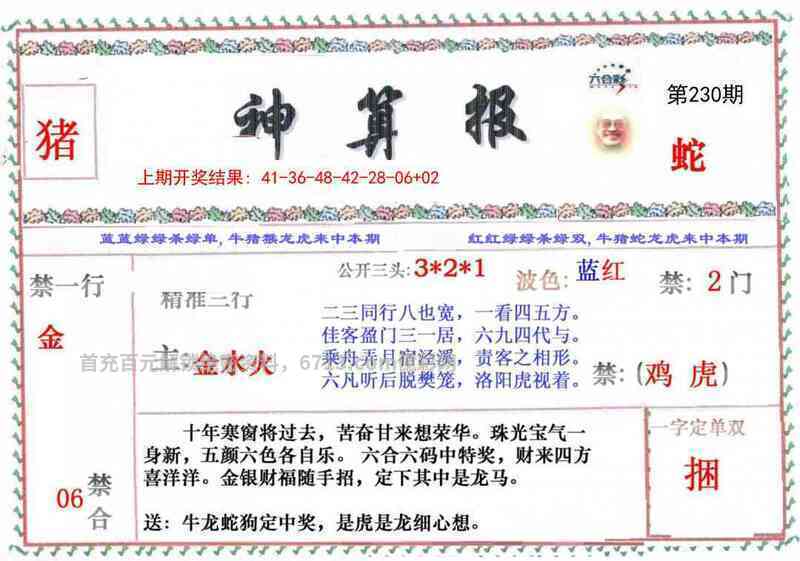 六合彩
第230期
神算报
猪
蛇
上期开奖结果: 41-36-48-42-28-06+02
蓝蓝绿绿杀绿单,牛猪猴龙虎来中本期
红红绿绿杀绿双,牛猪蛇龙虎来中本期
禁一行
金
精准三行
主
金水火
公开三头: 3*2*1
波色: 蓝红
禁: 2门
二三同行八也宽，一看四五方。
佳客盈门三一居，六九四代与。
乘舟弄月宿泾溪，责客之相形。
六凡听后脱樊笼，洛阳虎视着。
禁: (鸡 虎)
首充百元
十年寒窗将过去，苦奋甘来想荣华。珠光宝气一
身新，五颜六色各自乐。 六合六码中特奖，财来四方
喜洋洋。金银财福随手招，定下其中是龙马。
送：牛龙蛇狗定中奖，是虎是龙细心想。
06
禁合
一字定单双
捆